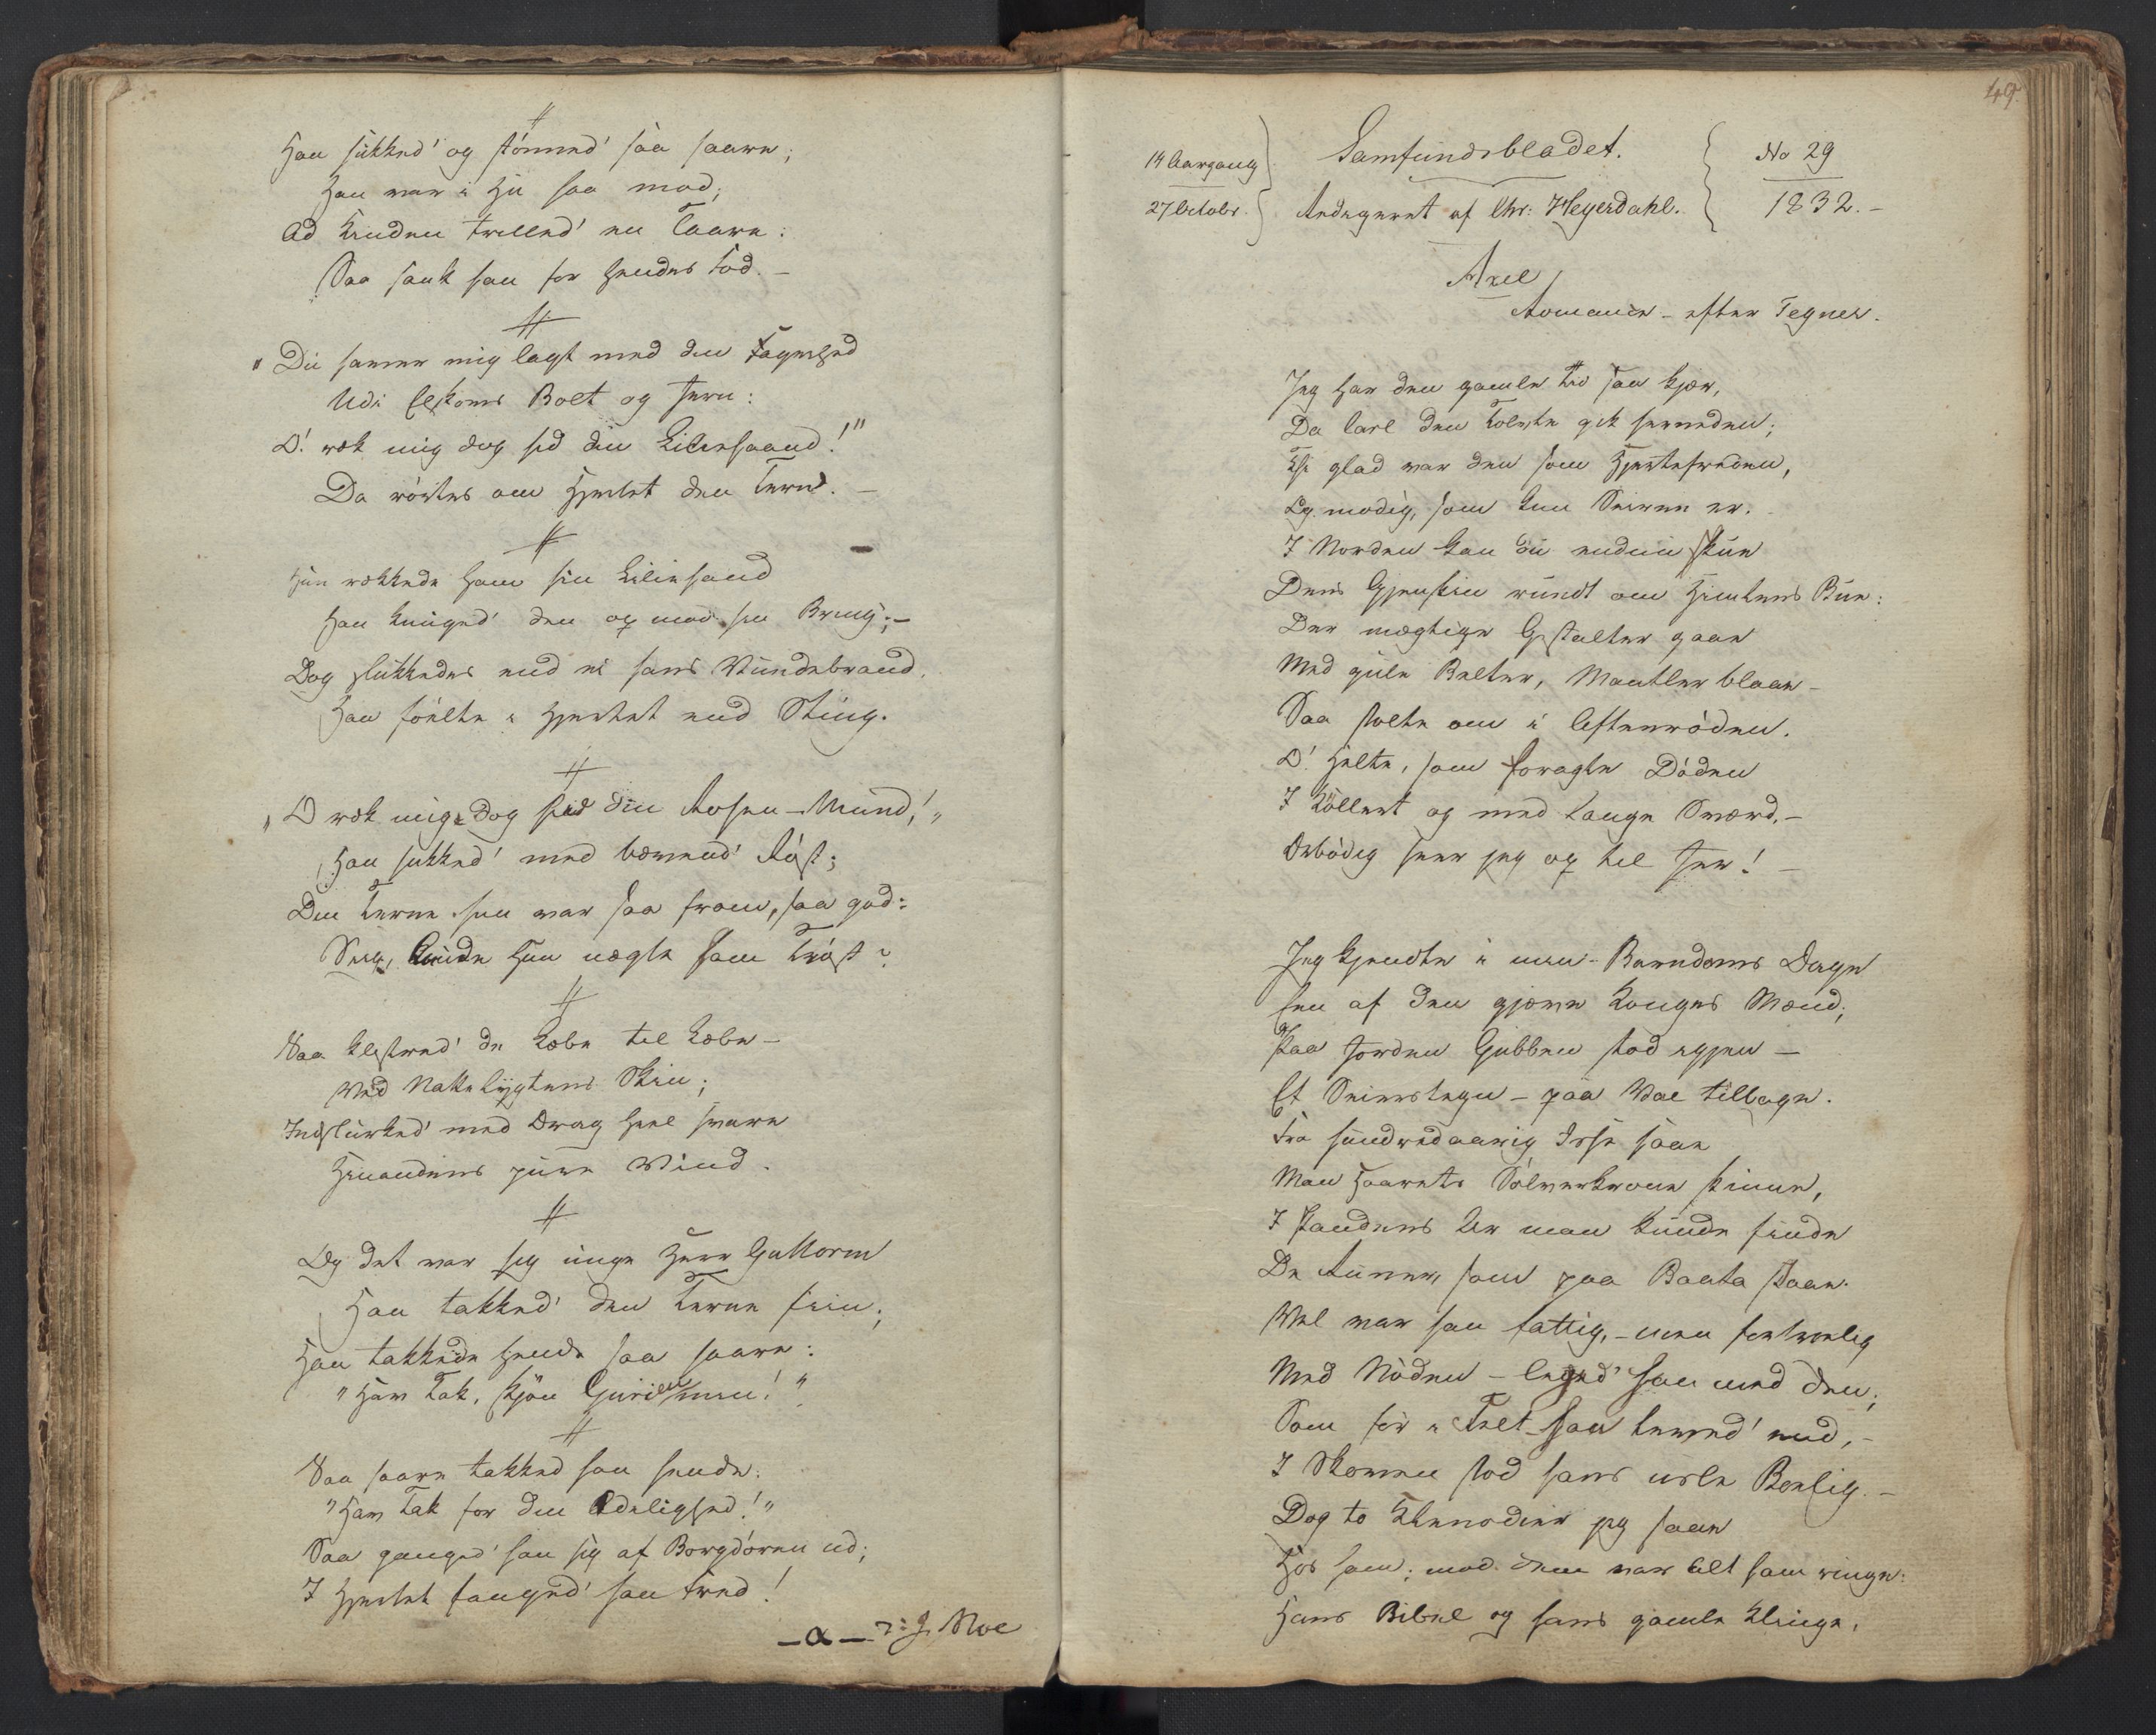 Han sukked' og stönned' saa saare;
Han war i Hu saa mod;
Ad Kinden trilled' en Taare:
Saa sank han for hendes Fod. –
"Du haver mig lagt med din Fagerhed
Udi Elskovs Bolt og Jern:
O! ræk mig dog hid din Liliehaand!"
Da rörtes om Hjertet den Tern'. –
Hun rækkede ham sin Liliehaand
Han knuged' den op mod sin Bring; –
Dog slukkedes end ei hans Vundebrand,
Han fölte i Hjertet end Sting.
"O ræk mig dog hid din Rosen-Mund!"
Han sukked' med bævend' Röst;
Den Terne hun war saa from, saa god:
Sig, kunde hun nægte ham Tröst?
Saa klistred' de Læbe til Læbe –
Ved Nattelygtens Skin;
Indslurked' med Drag heel svare
Hinandens pure Vind.
Og det war sig unge Herr Guttorm
Han takked' den Terne fiin;
Han takkede hende saa saare:
"Hav Tak, skjön Guri min!"
Saa saare takked han hende:
"Hav Tak for din Ædelighed!"
Saa ganged' han sig af Borgdören ud;
I Hjertet fanged' han Fred!
– α – ɔ: J. Moe
49.
14 Aargang
27 Octobr.
Samfundsbladet.
Redigeret af Chr: Heyerdahl.
No 29
1832. –
Axel
Romance – efter Tegner.
Jeg har den gamle Tid saa kjær,
Da Carl den Tolvte gik herneden;
Thi glad war den som Hjertefreden,
Og modig, som kun Seiren er.
I Norden kan du endnu skue
Dens Gjenskin rundt om Himlens Bue:
Der mægtige Gestalter gaae
Med gule Belter, Mantler blaae –
Saa stolte om i Aftenröden.
O! Helte, som foragte Döden
I Köllert og med lange Sværd, –
Ærbödig seer jeg op til Jer! –
Jeg kjendte i min Barndoms Dage
En af den gjæve Konges Mænd;
Paa Jorden Gubben stod igjen –
Et Seierstegn – paa Val tilbage.
Fra hundredaarig Isse saae
Man Haarets Sölverkrone skinne,
I Pandens Ar man kunde finde
De Runer, som paa Bauta staae.
Vel war han fattig, – men fortrolig
Med Nöden – leged' han med den;
Som för i Felt han leved' end, –
I Skoven stod hans usle Bolig. –
Dog to Klenodier jeg saae
Hos ham; mod dem war Alt ham ringe:
Hans Bibel og hans gamle Klinge,